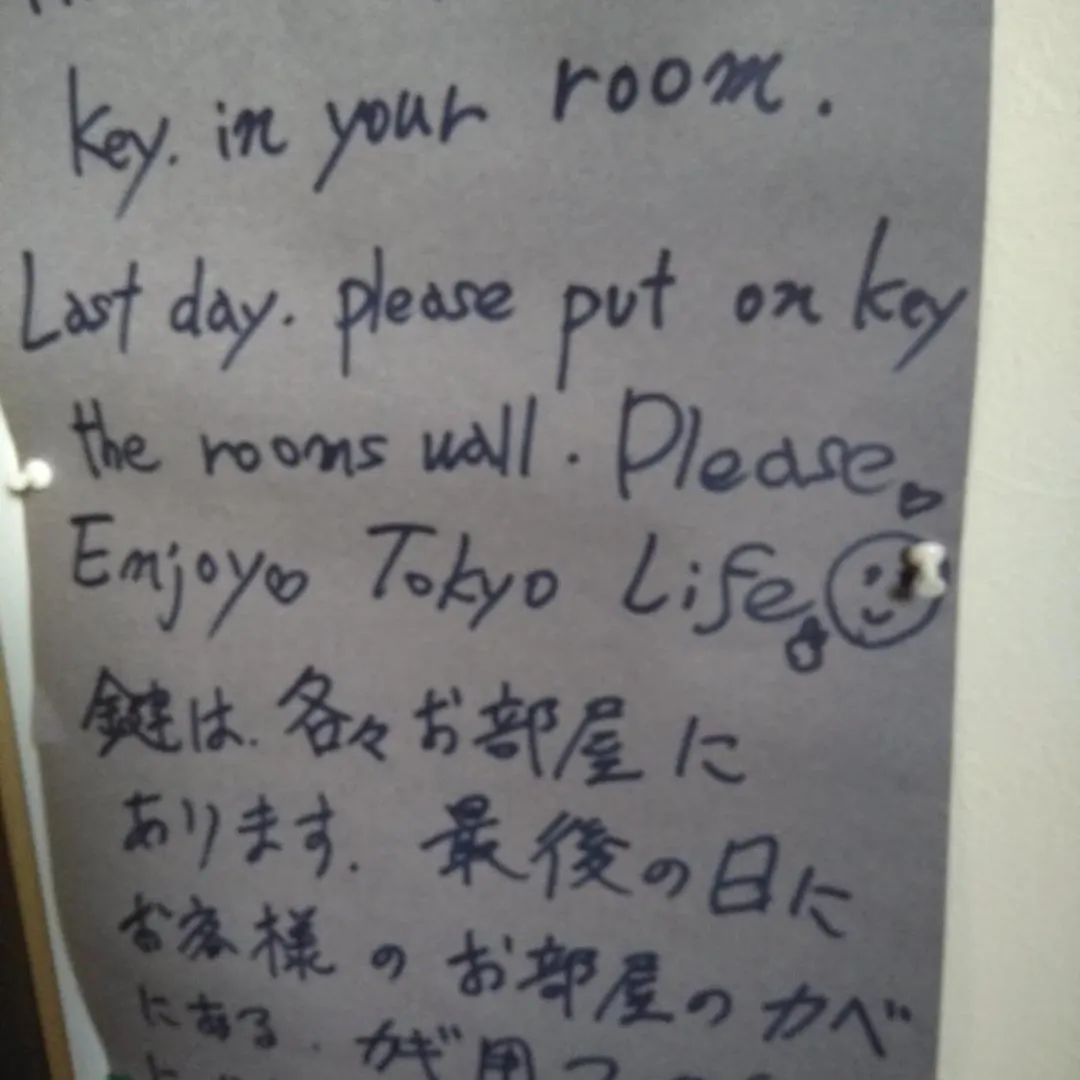 Key. in your room.
Last day. please put on key
the rooms wall. Please
Enjoy Tokyo Life
鍵は. 各々お部屋に
あります. 最後の日に
お客様のお部屋のカベ
にある. カギ用フ